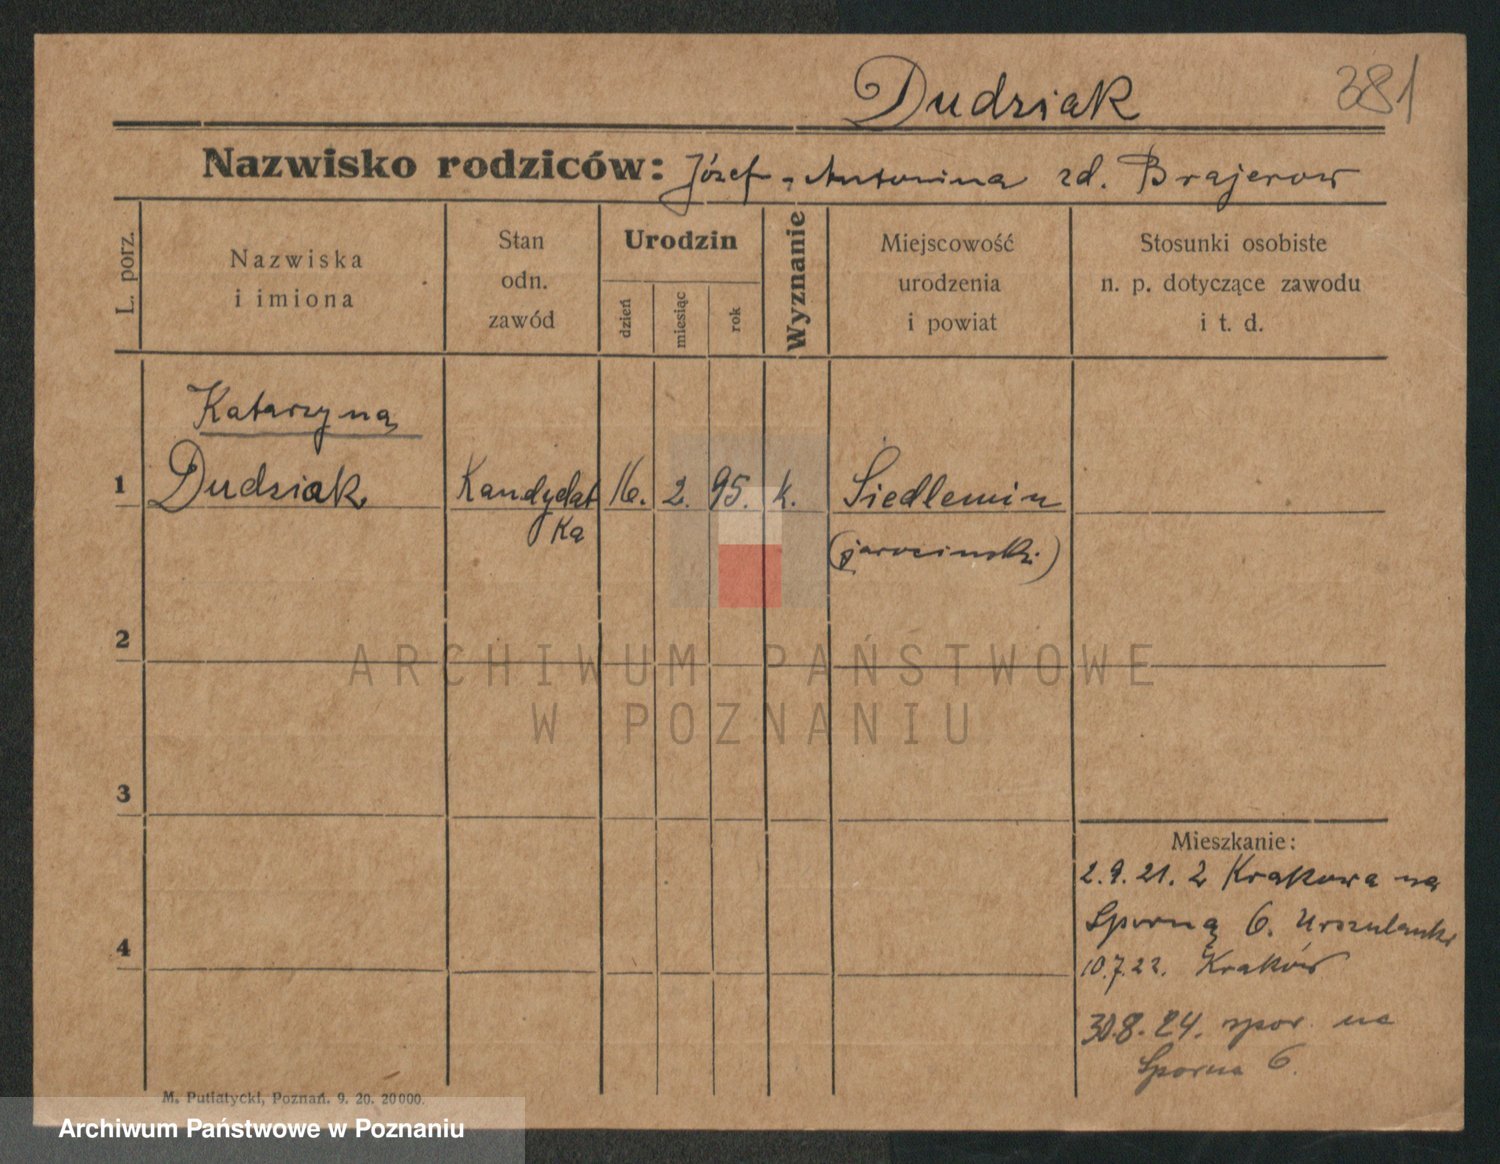 Dudziak
381
Nazwisko rodziców: Józef - Antonina zd. Brajerow
L. porz.
Nazwiska
i imiona
Stan
odn.
zawód
Urodzin
dzień
miesiąc
rok
Wyznanie
Miejscowość
urodzenia
i powiat
Stosunki osobiste
n. p. dotyczące zawodu
i t. d.
Katarzyna
1 Dudziak Kandydat 16. 2. 95. k. Siedlemin
ka (jarocinski)
2
ARCHIWUM PAŃSTWOWE
W POZNANIU
3
Mieszkanie:
2.9.21. z Krakowa na
Sporną 6. Urszulanki
4
10.7.22. Kraków
30.8.24. na
Sporna 6.
M. Putiatycki, Poznań. 9. 20. 20000.
Archiwum Państwowe w Poznaniu